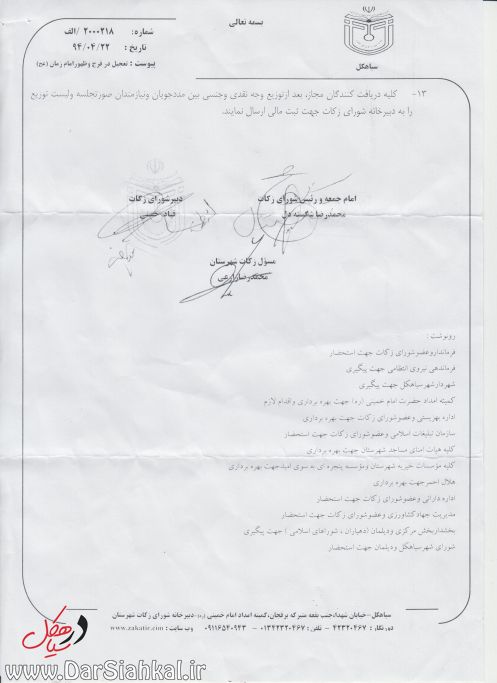 بسمه تعالی
سیاهکل
شماره: ۲۰۰۰۲۱۸ /الف
تاریخ : ۹۴/۰۴/۲۲
پیوست : تعجیل در فرج وظهورامام زمان (عج)
۱۳- کلیه دریافت کنندگان مجاز، بعد ازتوزیع وجه نقدی وجنسی بین مددجویان ونیازمندان صورتجلسه ولیست توزیع
را به دبیرخانه شورای زکات جهت ثبت مالی ارسال نمایند.
امام جمعه و رئیس شورای زکات
محمدرضا شایسته دل
دبیرشورای زکات
قباد حبیبی
مسؤل زکات شهرستان
محمدرضا
رونوشت :
فرمانداروعضوشورای زکات جهت استحضار
فرماندهی نیروی انتظامی جهت پیگیری
شهردارشهرسیاهکل جهت پیگیری
کمیته امداد حضرت امام خمینی (ره) جهت بهره برداری واقدام لازم
اداره بهزیستی وعضوشورای زکات جهت بهره برداری
سازمان تبلیغات اسلامی وعضوشورای زکات جهت استحضار
کلیه هیات امنای مساجد شهرستان جهت بهره برداری
کلیه مؤسسات خیریه شهرستان ومؤسسه پنجره ای به سوی امیدجهت بهره برداری
هلال احمرجهت بهره برداری
اداره دارائی وعضوشورای زکات جهت استحضار
مدیریت جهادکشاورزی وعضوشورای زکات جهت استحضار
بخشداربخش مرکزی ودیلمان (دهیاران ، شوراهای اسلامی ) جهت پیگیری
شورای شهرسیاهکل ودیلمان جهت استحضار
سیاهکل-خیابان شهدا،جنب بقعه متبرکه برفجان،کمیته امداد امام خمینی (ره)-دبیرخانه شورای زکات شهرستان
دورنگار : ۴۲۳۲۰۴۶۷ - تلفن : ۰۱۳۴۲۳۲۰۴۶۷ - ۰۹۱۱۶۵۴۰۹۴۳ وب سایت : www.zakatir.com
در سیاهکل
www.DarSiahkal.ir